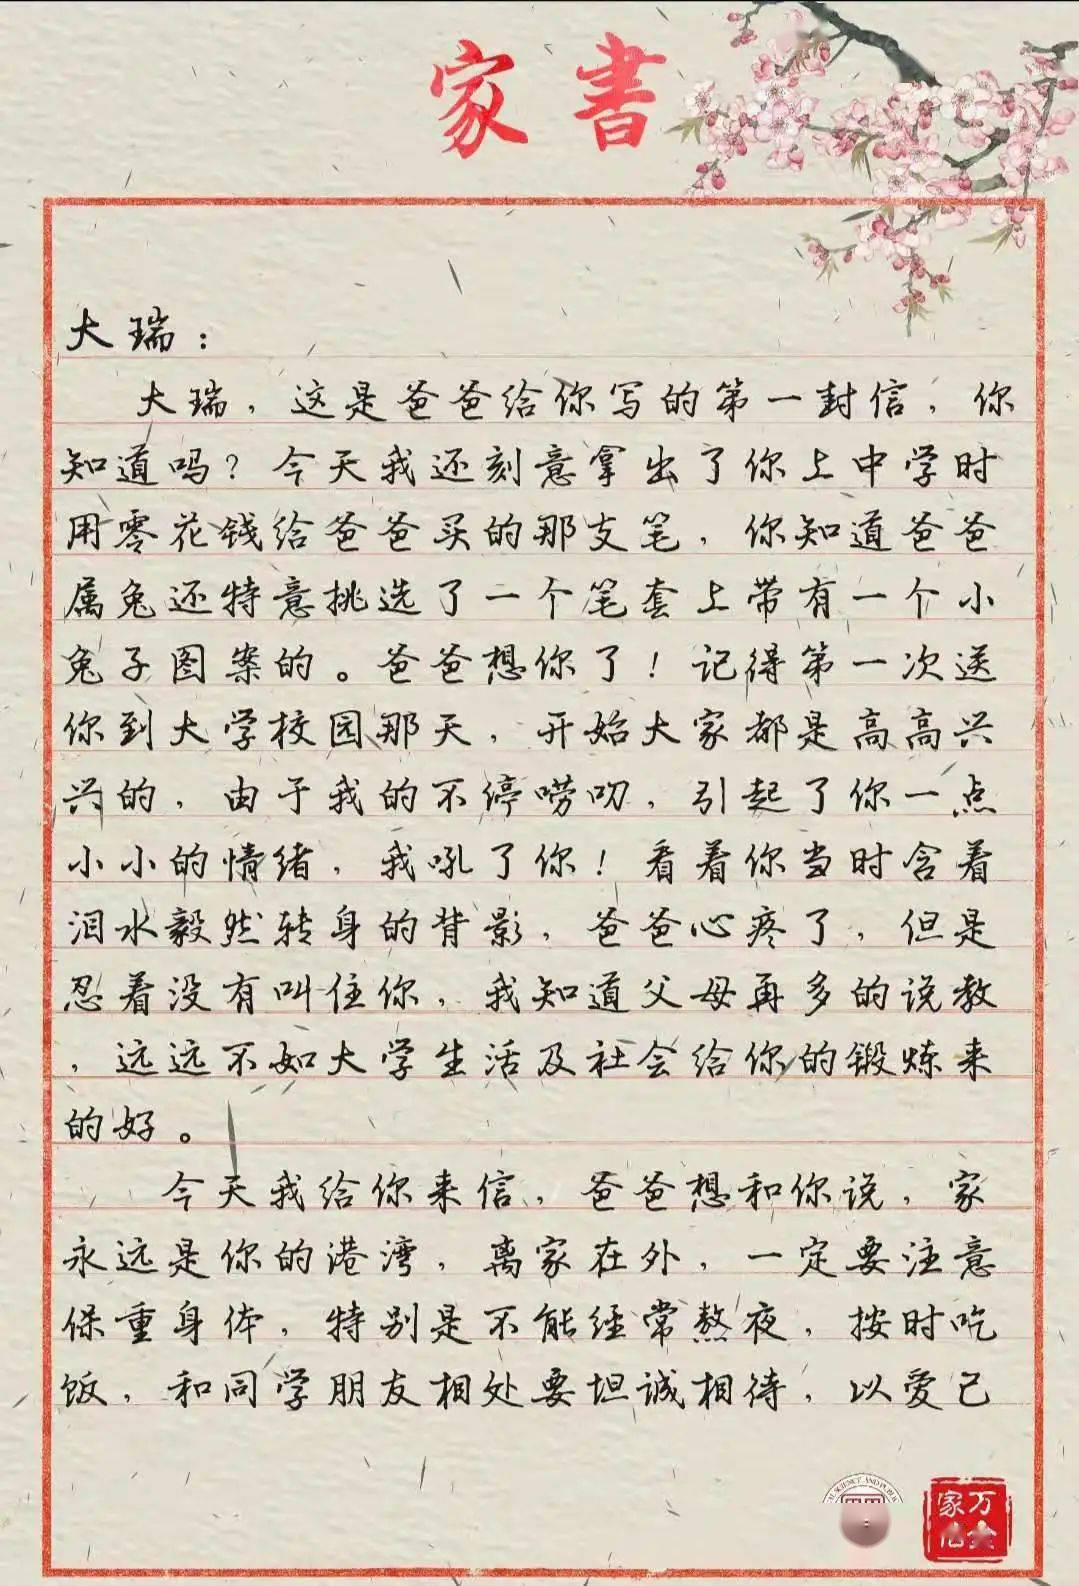 家書
大瑞：
大瑞，这是爸爸给你写的第一封信，你
知道吗？今天我还刻意拿出了你上中学时
用零花钱给爸爸买的那支笔，你知道爸爸
属兔还特意挑选了一个笔套上带有一个小
兔子图案的。爸爸想你了！记得第一次送
你到大学校园那天，开始大家都是高高兴
兴的，由于我的不停唠叨，引起了你一点
小小的情绪，我吼了你！看着你当时含着
泪水毅然转身的背影，爸爸心疼了，但是
忍着没有叫住你，我知道父母再多的说教
，远远不如大学生活及社会给你的锻炼来
的好。
今天我给你来信，爸爸想和你说，家
永远是你的港湾，离家在外，一定要注意
保重身体，特别是不能经常熬夜，按时吃
饭，和同学朋友相处要坦诚相待，以爱己
SCIENCE AND
家万